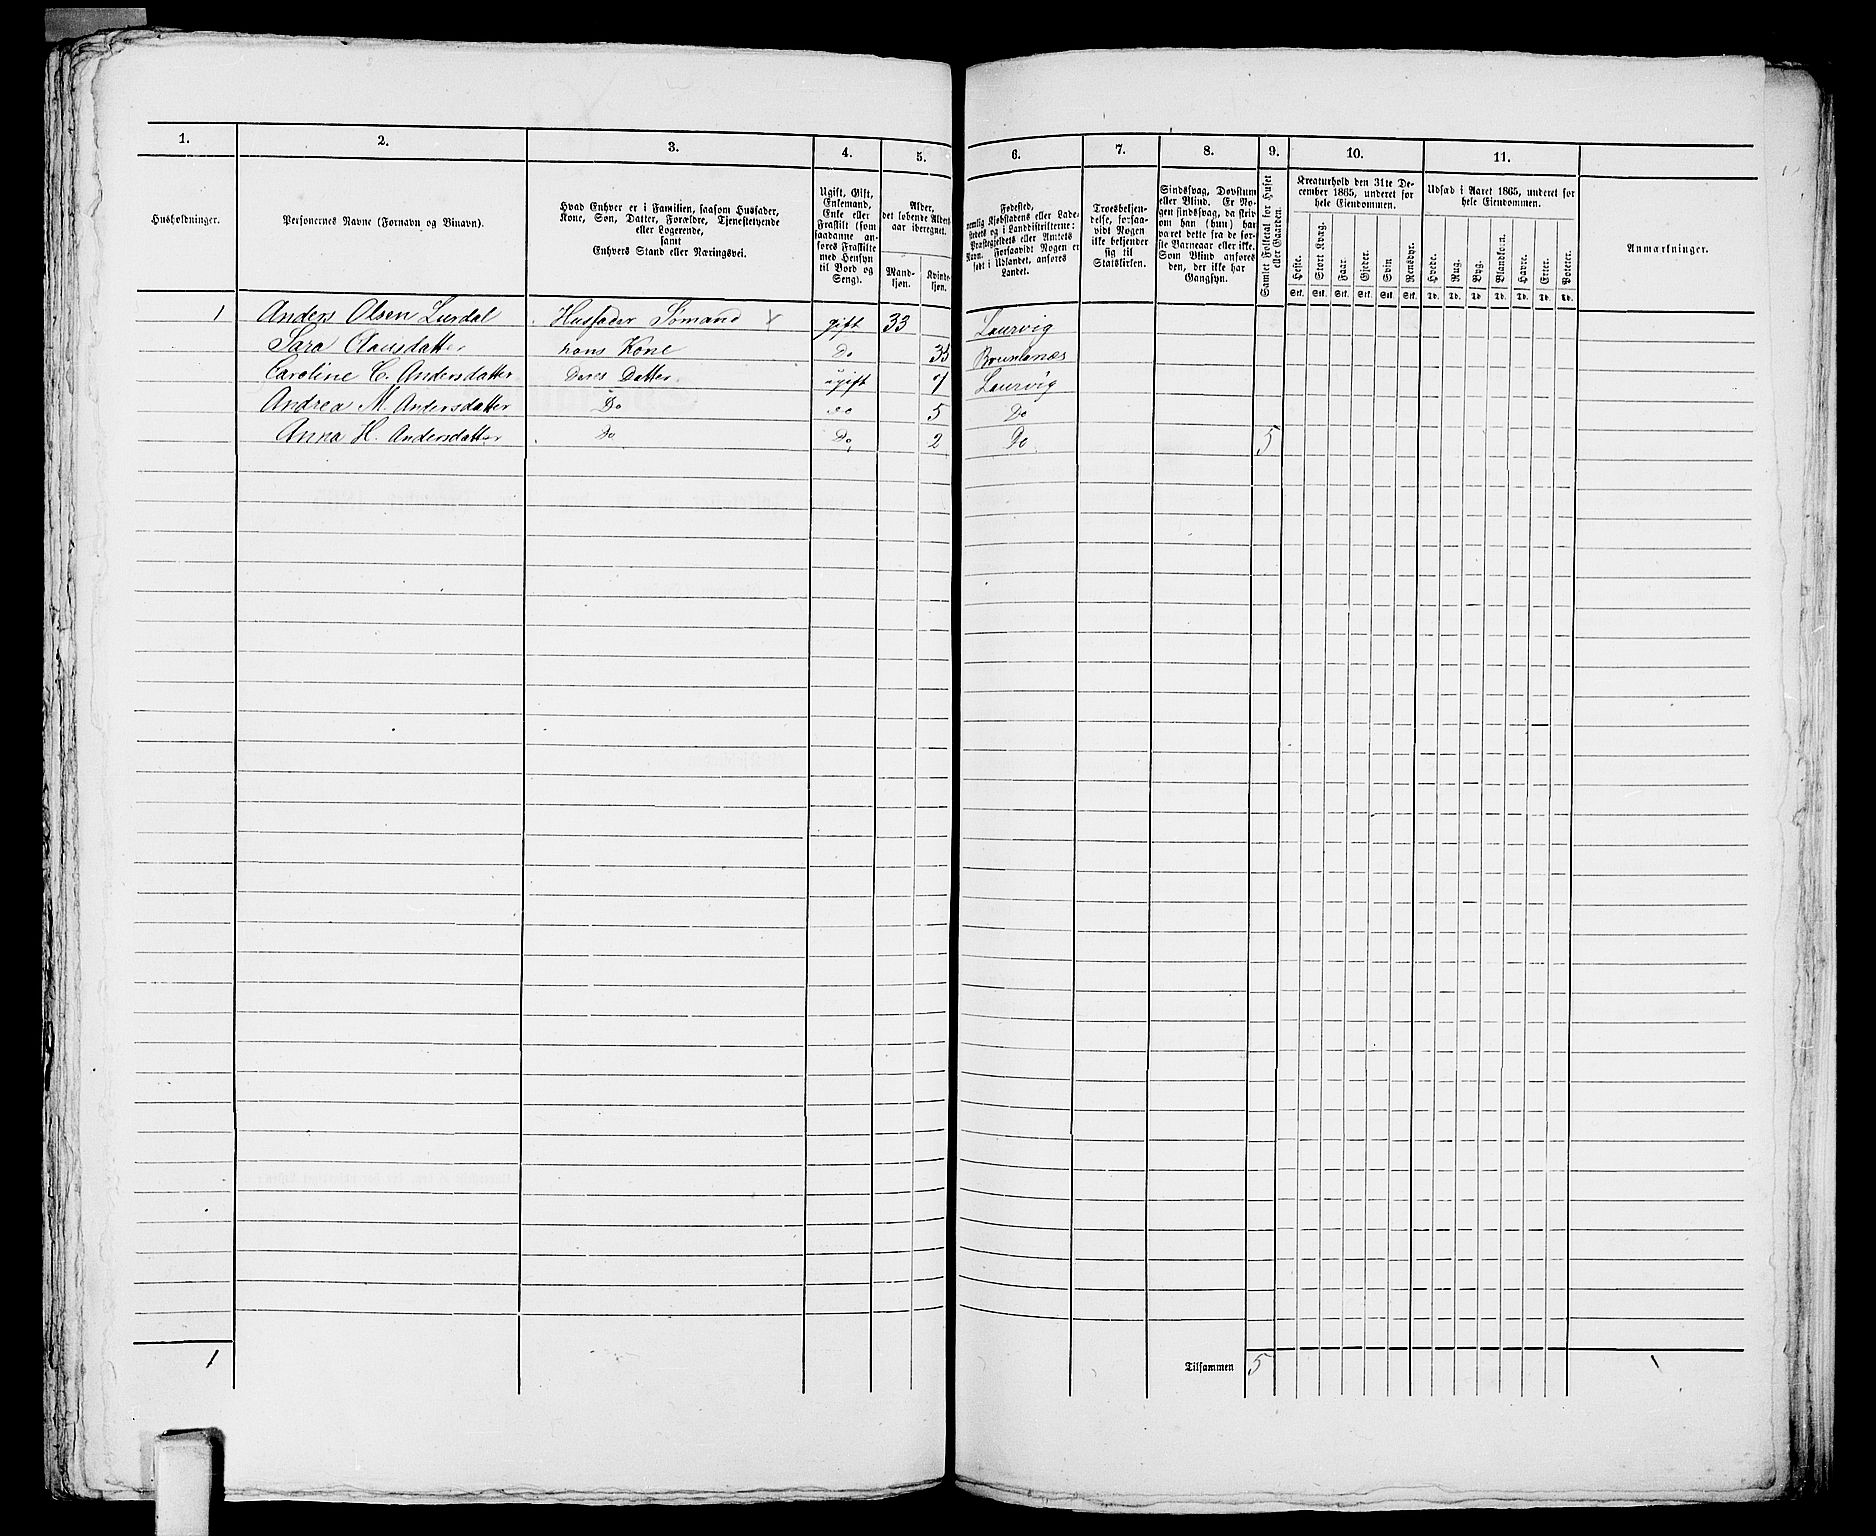 1. 2. 3. 4. 5. 6. 7. 8. 9. 10. 11.
Husholdninger.
Personernes Navne (Fornavn og Binavn).
Hvad Enhver er i Familien, saasom Husfader,
Kone, Søn, Datter, Forældre, Tjenestetyende
eller Logerende,
samt
Enhvers Stand eller Næringsvei.
Ugift, Gift,
Enkemand,
Enke eller
Fraskilt (som
saadanne an-
føres Fraskilte
med Hensyn
til Bord og
Seng).
Alder,
det løbende Alders-
aar iberegnet.
Mand-
kjøn.
Kvinde-
kjøn.
Fødested,
nemlig Kjøbstadens eller Lade-
stedets og i Landdistrikterne:
Præstegjeldets eller Amtets
Navn. Forsaavidt Nogen er
født i Udlandet, anføres
Landet.
Troesbekjen-
delse, forsaa-
vidt Nogen
ikke bekjender
sig til
Statskirken.
Sindssvag, Døvstum
eller Blind. Er No-
gen sindssvag, da skriv
om han (hun) har
været dette fra de før-
ste Barneaar eller ikke.
Som Blind anføres
den, der ikke har
Gangsyn.
Samlet Folketal for Huset
eller Gaarden.
Kreaturhold den 31te De-
cember 1865, underet for
hele Eiendommen.
Heste.
Stort Kvæg.
Faar.
Gjeder.
Svin
Rensdyr.
Stk. Stk. Stk. Stk. Stk. Stk.
Udsæd i Aaret 1865, underet for
hele Eiendommen.
Hvede.
Rug.
Byg.
Blandkorn.
Havre.
Erter.
Poteter.
Td. Td. Td. Td. Td. Td. Td.
Anmærkninger.
1 Anders Olsen Husfader Sømand gift 33 Laurvig
Sara Clausdatter hans Kone Do 35 Brunlanæs
Caroline C. Andersdatter Deres Datter ugift 7 Laurvig
Andrea M. Andersdatter Do Do 5 Do
Anna H. Andersdatter Do Do 2 Do 5
1 Tilsammen 5